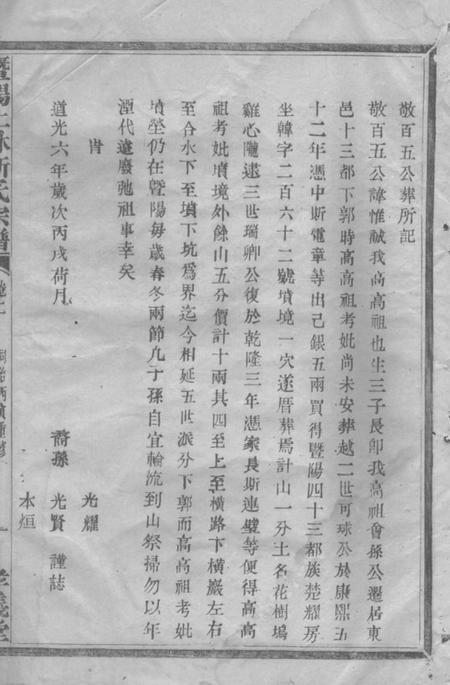 敬百五公葬所記
敬百五公諱惟誠我高高祖也生三子長卽我高祖會孫公遷居東
邑十三都下郭時高高祖考妣尚未安葬越二世可球公於康熙五
十二年憑中斯電章等出己銀五兩買得暨陽四十三都族楚耀房
坐韓字二百六十二號墳境一穴遂厝葬焉計山一分土名花樹塢
雞心隴逮三世瑞卿公復於乾隆三年憑家長斯連璧等便得高高
祖考妣墳境外餘山五分價計十兩其四至上至橫路下橫巖左右
至合水下至墳下坑爲界迄今相延五世派分下郭而高高祖考妣
墳塋仍在暨陽每歲春冬兩節凡子孫自宜輪流到山祭掃勿以年
湮代遠廢弛祖事幸矣
旹
道光六年歲次丙戌荷月
光耀
裔孫 光賢 謹誌
本烜
暨陽上林斯氏宗譜
卷二
一 孝義堂